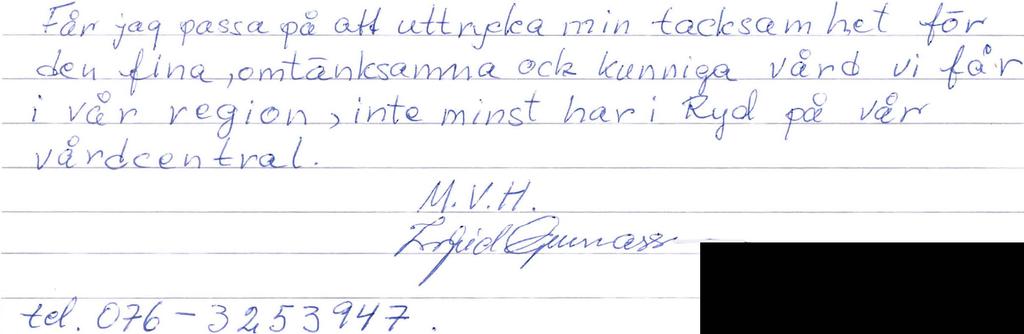 Får jag passa på att uttrycka min tacksamhet för
den fina, omtänksamma och kunniga vård vi får
i vår region, inte minst har i Ryd på vår
vårdcentral.
M.V.H.
tel. 076-3253947.